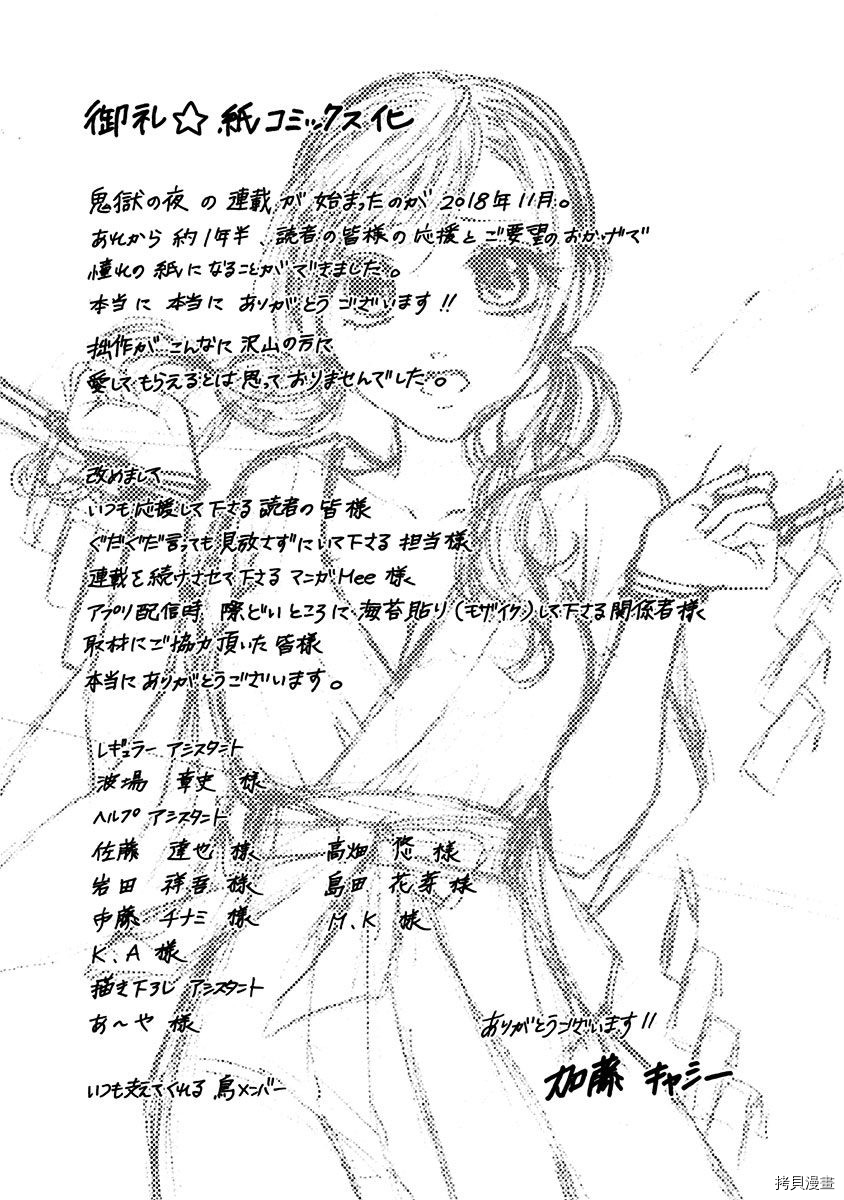 御礼☆紙コミックス化
鬼獄の夜の連載が始まったのが2018年11月。
あれから約1年半、読者の皆様の応援とご要望のおかげで
憧れの紙になることができました。
本当に本当にありがとうございます!!
拙作がこんなに沢山の方に
愛してもらえるとは思っておりませんでした。
改めまして
いつも応援して下さる読者の皆様
ぐだぐだ言っても見放さずにいて下さる担当様
連載を続けさせて下さるマンガMee様
アプリ配信時 際どいところに海苔貼り(モザイク)して下さる関係者様
取材にご協力頂いた皆様
本当にありがとうございます。
レギュラーアシスタント
波場 章史 様
ヘルプアシスタント
佐藤 達也 様 高畑 悠 様
岩田 祥吾 様 島田 花芽 様
中藤 チナミ 様 M.K 様
K.A 様
描き下ろしアシスタント
あ～や 様
いつも支えてくれる鳥メンバー
ありがとうございます!!
加藤 キャシー
拷貝漫畫